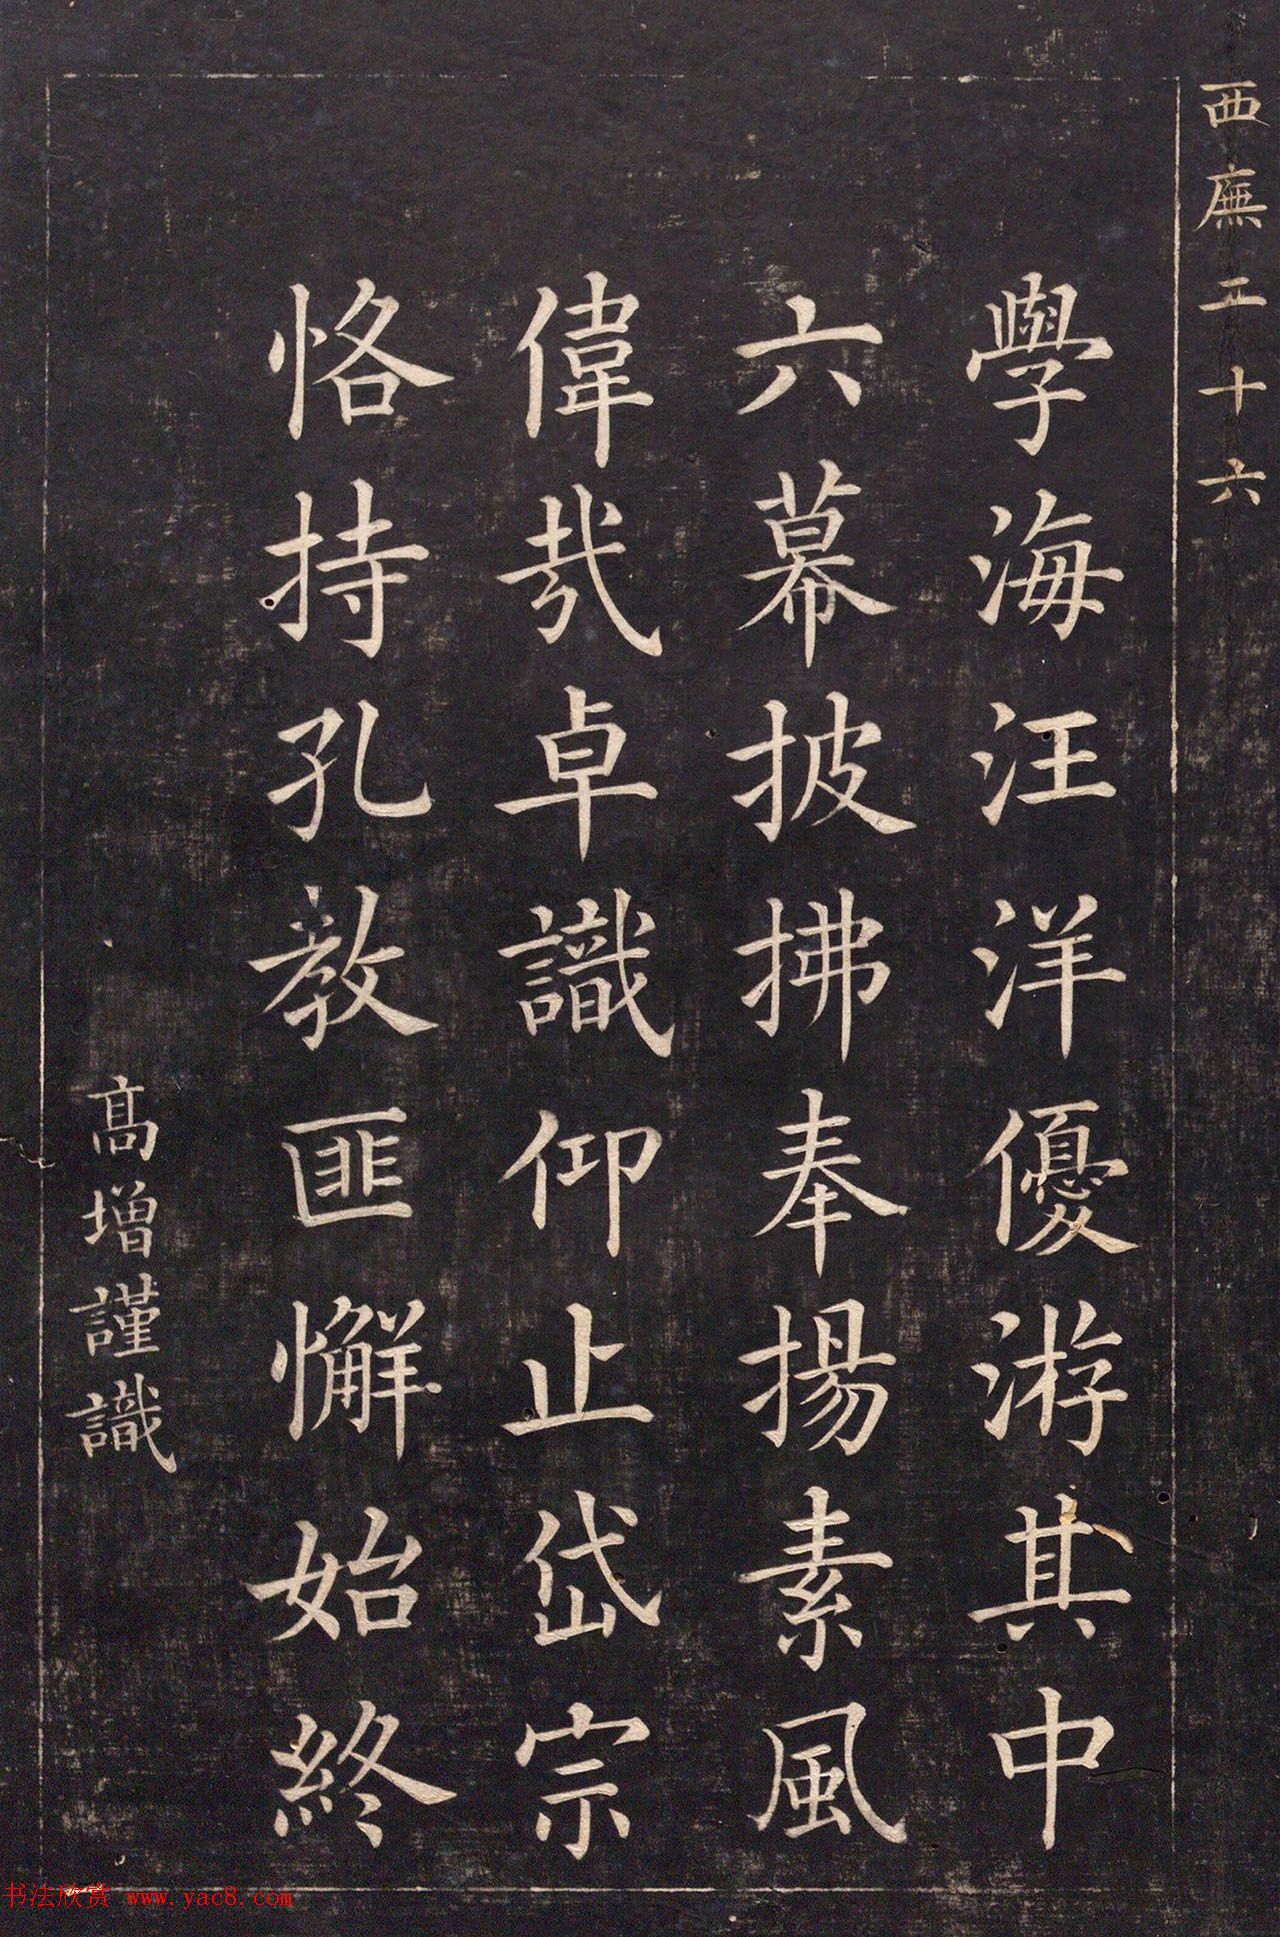 西廡五十六
學海汪洋優游其中
六幕披拂奉揚素風
偉哉卓識仰止岱宗
恪持孔教匪懈始終
高增謹識
书法欣赏 www.yac8.com